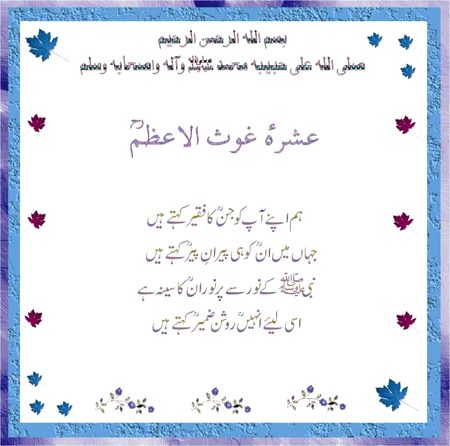 بسم الله الرحمن الرحيم
صلى الله على حبيبه محمد ﷺ وآله واصحابه وسلم
عشرۂ غوث الاعظمؒ
ہم اپنے آپ کو جنؒ کا فقیر کہتے ہیں
جہاں میں انؒ کو ہی پیرانِ پیرؒ کہتے ہیں
نبی ﷺ کے نور سے پر نور انؒ کا سینہ ہے
اسی لیئے انہیںؒ روشن ضمیرؒ کہتے ہیں